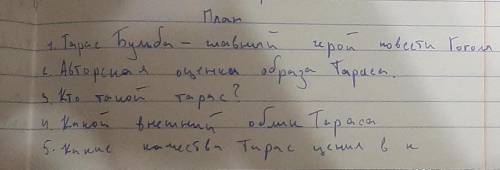 План
1. Тарас Бульба – главный герой повести Гоголя
2. Авторская оценка образа Тараса.
3. Кто такой тарас?
4. Какой внешний облик Тараса
5. Какие качества Тарас ценил в к